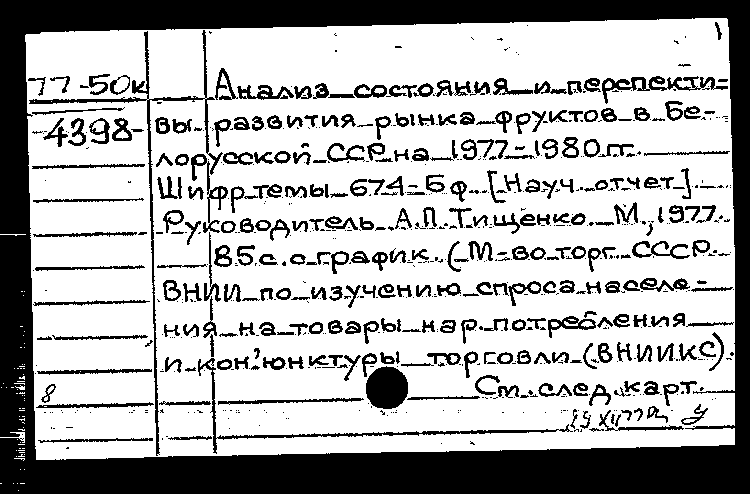 1
77-50к Анализ состояния и перспекти=
4398- вы развития рынка фруктов в Бе-
лорусской ССР на 1977-1980 гг.
Шифр темы 674-Бф. [Науч. отчет].
Руководитель А.П.Тищенко. М., 1977.
85 с. с график. (М-во торг. СССР.
ВНИИ по изучению спроса населе-
ния на товары нар. потребления
и кон'юнктуры торговли (ВНИИКС).
8 См. след. карт.